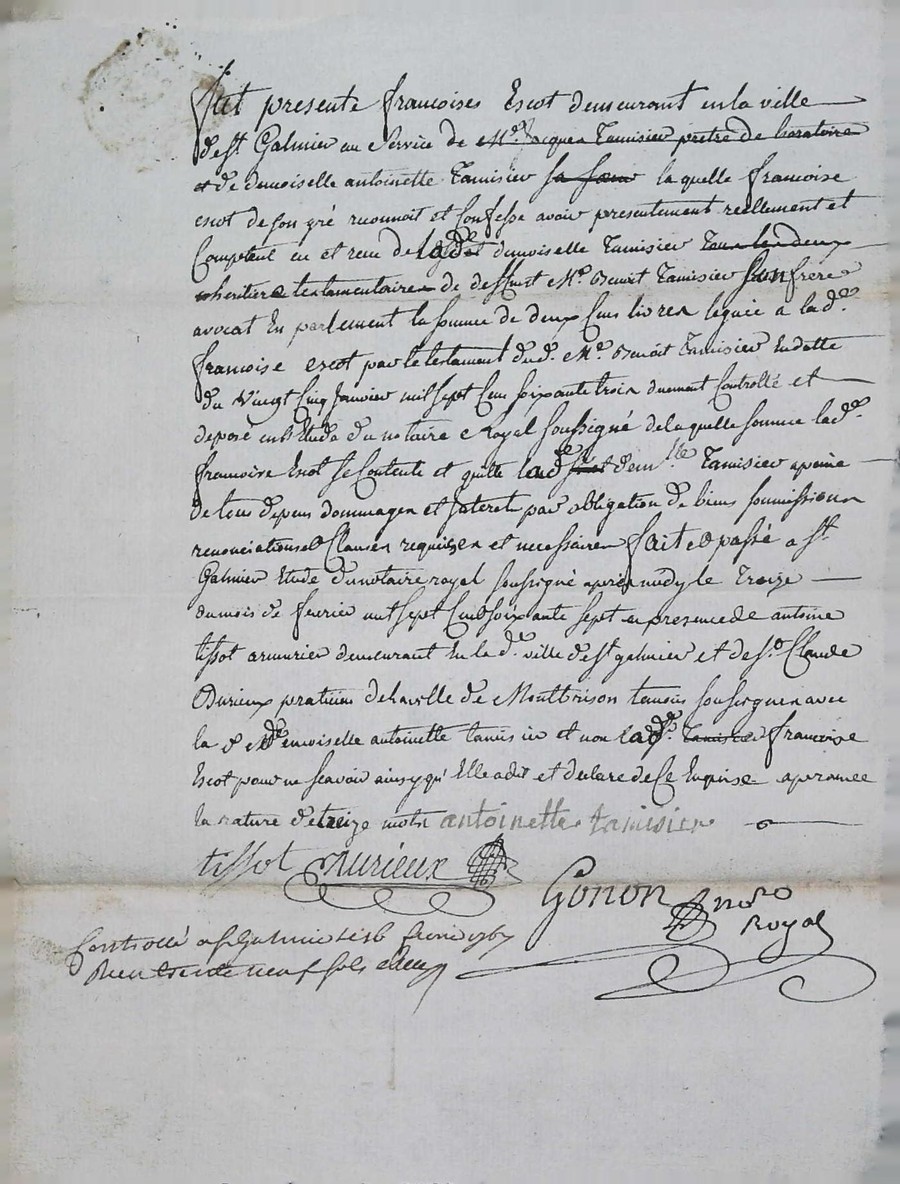 fut presente francoises Escot demeurant en la ville
de st. Galmier au Service de Mre. Jacques Tamisier pretre de loratoire
et de demoiselle antoinette Tamisier sa soeur la quelle francoise
escot de son gré reconnoit et Confesse avoir presentement reellement et
Comptent eu et recu de la de. demoiselle Tamisier Tous les deux
heritiers testamentaires de deffunt Mre. Benoit Tamisier son frere
avocat En parlement la somme de deux Cens livres leguée a lade.
francoise escot par le testament dud. Mre. Benoit Tamisier Endatte
du Vingt Cinq Janvier mil sept Cens soixante trois duement Controllé et
deposé en l'Etude du notaire Royal soussigné de laquelle somme lade.
francoise Escot se Contente et quitte lade demlle Tamisier apeine
de tous depens dommages et interets par obligation de biens soumissions
renonciations et Clauses requises et necessaires fait et passé a st.
Galmier Etude du notaire royal soussigné apres midy le Treize
du mois de fevrier mil sept Cent soixante sept en presence de antoine
tissot armurier demeurant En lad. ville de st galmier et de sr. Claude
Durieux praticien de la ville de Montbrison temoins soussignes avec
la d demoiselle antoinette tamisier et non lade. Tamisier francoise
Escot pour ne scavoir ainsy qu'Elle a dit et declare de Ce Enquise aprouvee
la rature de treize mots antoinette tamisier
tissot Durieux
Gonon nore
Royal
Controllé a st Galmier le 16 fevrier 1767
Recu trente neuf sols